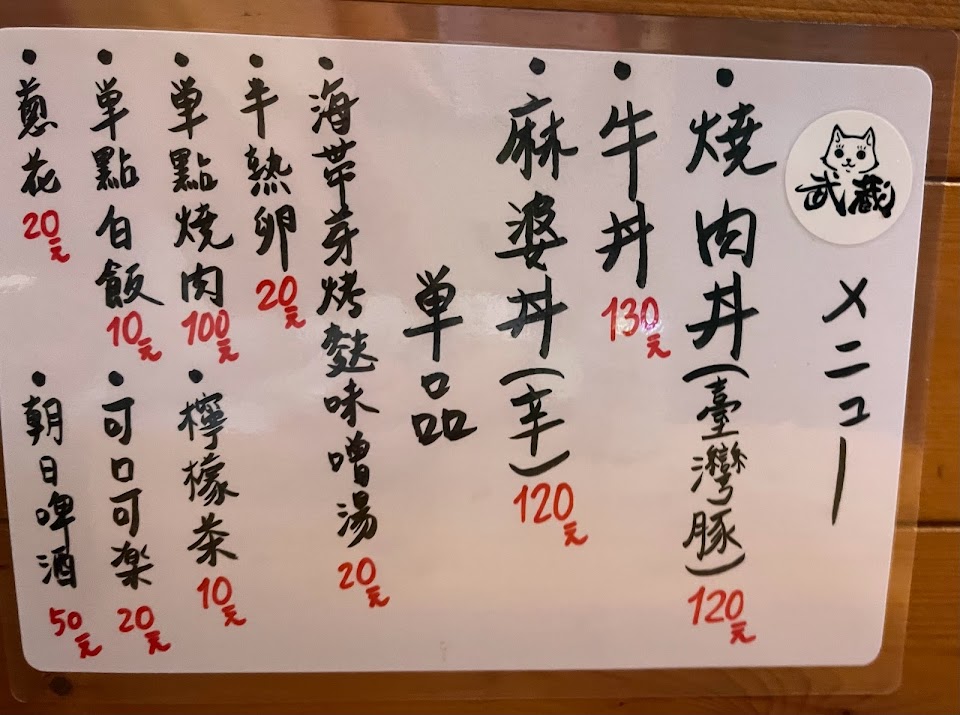 武蔵
メニュー
•燒肉丼(臺灣豚)120元
•牛丼130元
•麻婆丼(辛)120元
単品
•海帶芽烤麩味噌湯20元
•半熟卵20元
•単點燒肉100元
•檸檬茶10元
•単點白飯10元
•可口可楽20元
•蔥花20元
•朝日啤酒50元